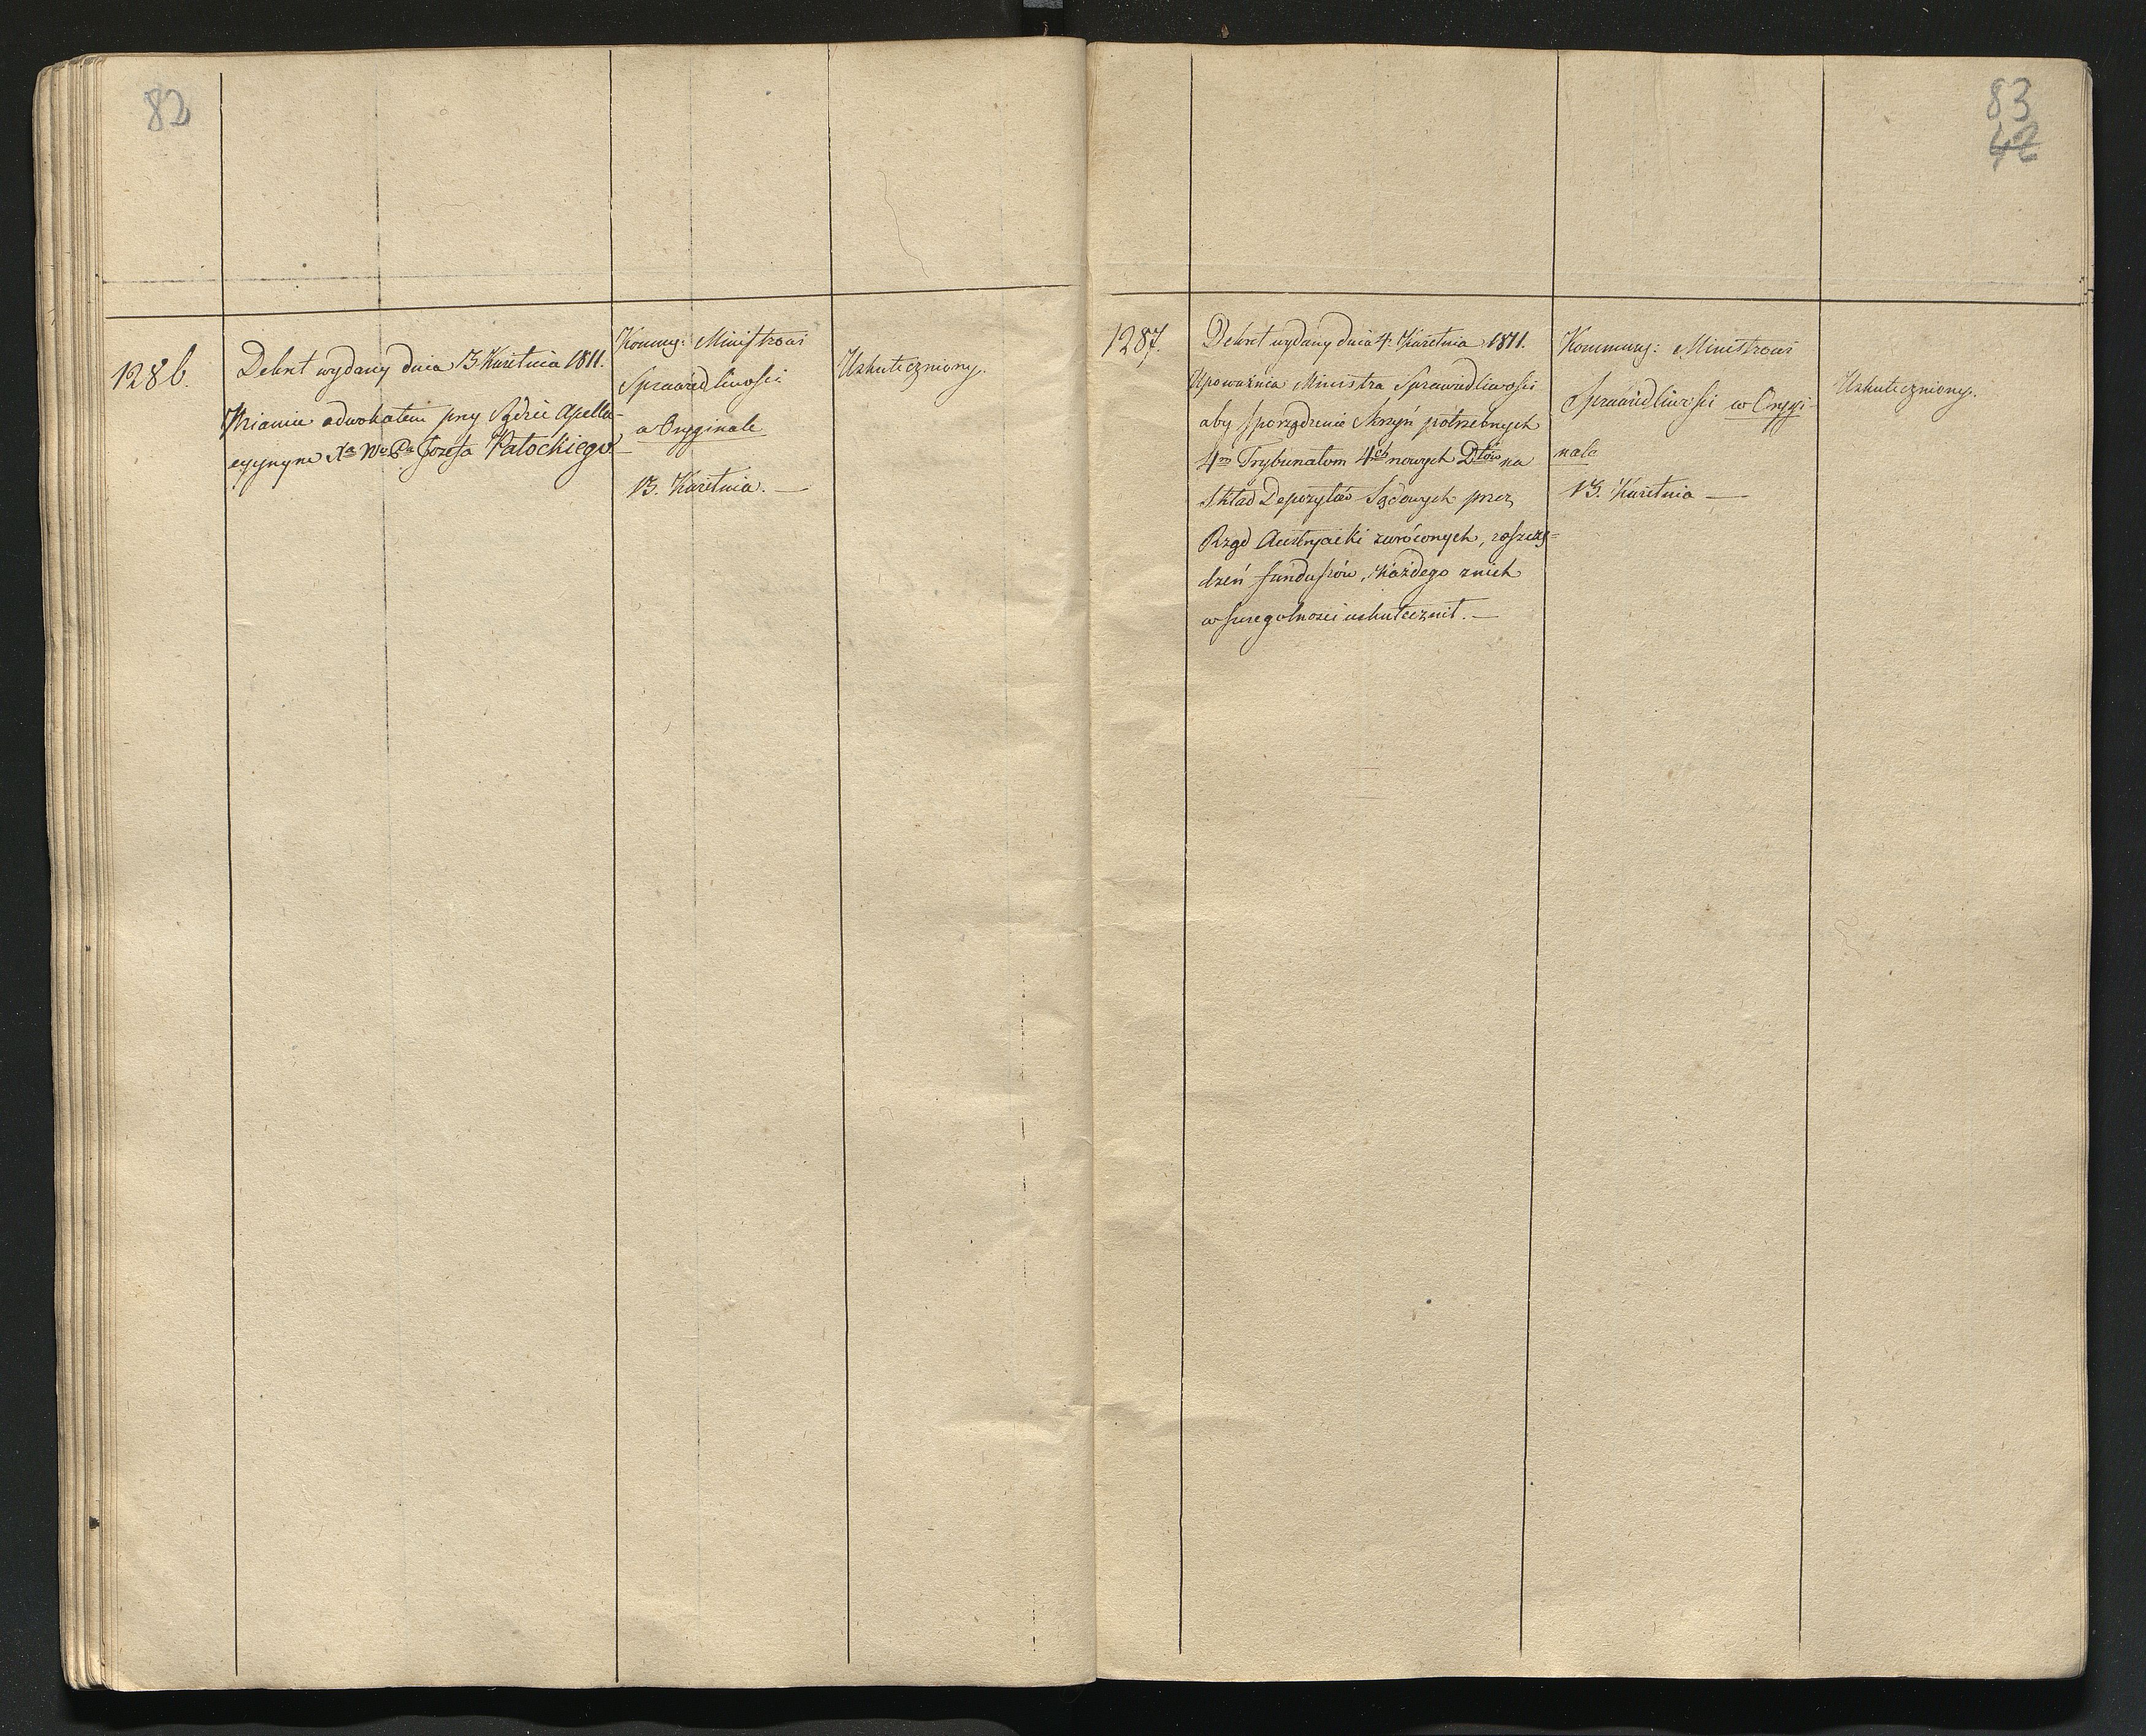 82
1286.
Dekret wydany dnia 13 Kwietnia 1811.
Mianuie adwokatem przy Sądzie Apella-
cyjnym Xa Wo Pa Jozefa Patockiego
Kommuj: Ministrowi
Sprawiedliwości
w Oryginale
13. Kwietnia. —
Uskuteczniony.
83
42
1287.
Dekret wydany dnia 4. Kwietnia 1811.
Upoważnia Ministra Sprawiedliwości
aby sporządzenie Skrzyń potrzebnych
4m Trybunałom 4ch nowych Dtów na
Skład Depozytów Sądowych przez
Rząd Austryacki zwróconych, z oszczę-
dzeń funduszów, każdego z nich
w szczegolności uskutecznił. —
Kommuj: Ministrowi
Sprawiedliwości w Orygi-
nale
13. Kwietnia —
Uskuteczniony.